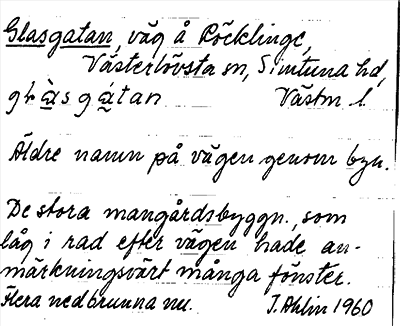 Glasgatan, väg å Röcklinge,
Västerlövsta sn, Simtuna hd,
Västm. l.
Äldre namn på vägen genom byn.
De stora mangårdsbyggn., som
låg i rad efter vägen hade an-
märkningsvärt många fönster.
Flera nedbrunna nu. J. Ahlin 1960